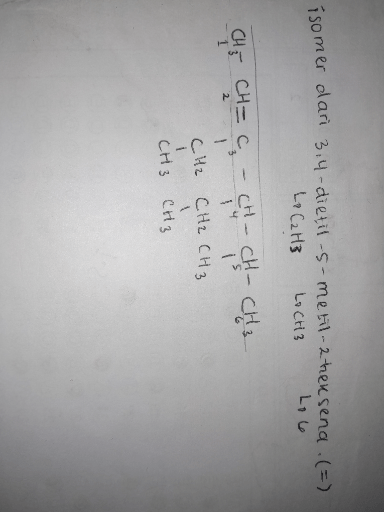 isomer dari 3,4-dietil-5-metil-2-heksena. (=)
L> C2H3 L> CH3 L> 6
CH3 - CH = C - CH - CH - CH3
1 2 3 4 5 6
CH2 CH2 CH3
CH3 CH3